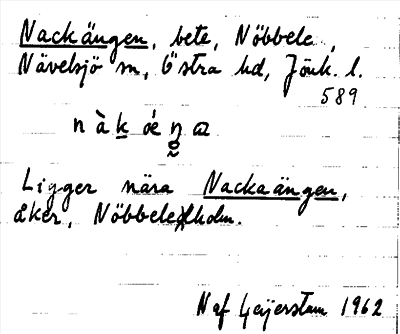 Nackängen, bete, Nöbbele,
Nävelsjö sn, Östra hd, Jönk. l.
589
Ligger nära Nackaängen,
åker, Nöbbeleholm.
N af Geijerstam 1962